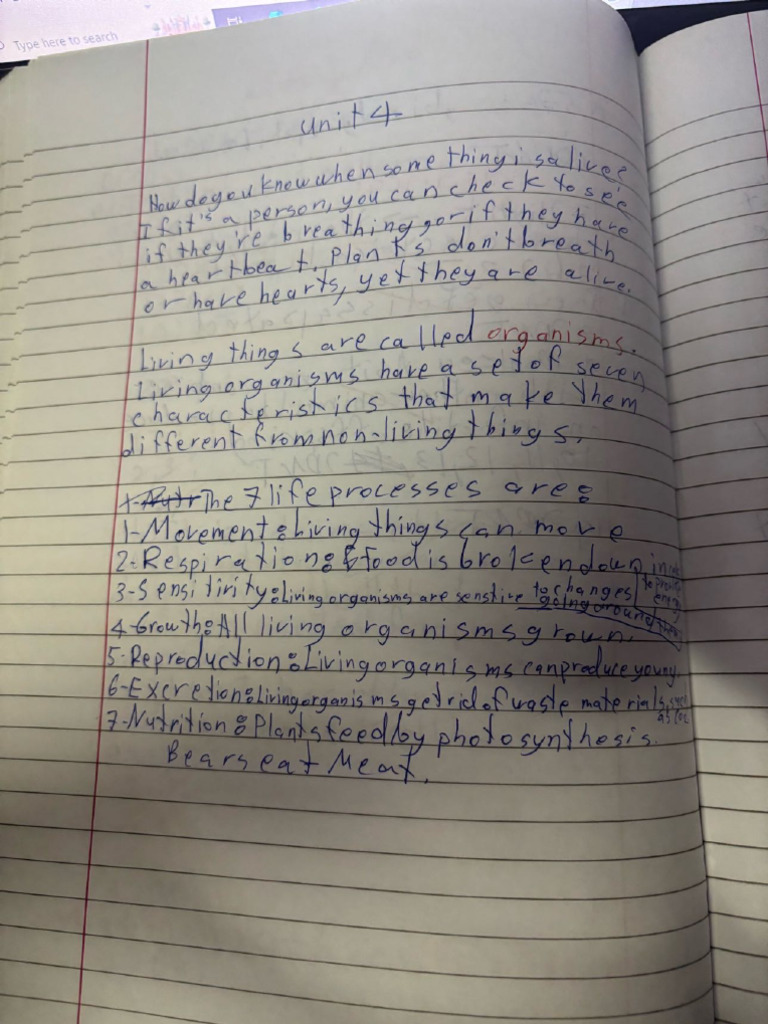 Type here to search
unit 4
How do you know when some thing is alive?
If it's a person, you can check to see
if they're breathing gor if they have
a heartbeat. Plants don't breath
or have hearts, yet they are alive.
Living things are called organisms.
Living organisms have a set of seven
characteristics that make them
different from non-living things.
1-Nutr The 7 life processes are:
1-Movement: Living things can move
2-Respiration: food is broken down in
to provide
energy
3-Sensitivity: Living organisms are senstive to changes
going around
4-Growth: All living organisms grown.
5-Reproduction: Living organisms can produce young.
6-Excretion: Living organisms get rid of waste materials, such
as CO2
7-Nutrition: Plants feed by photosynthesis.
Bears eat Meat.